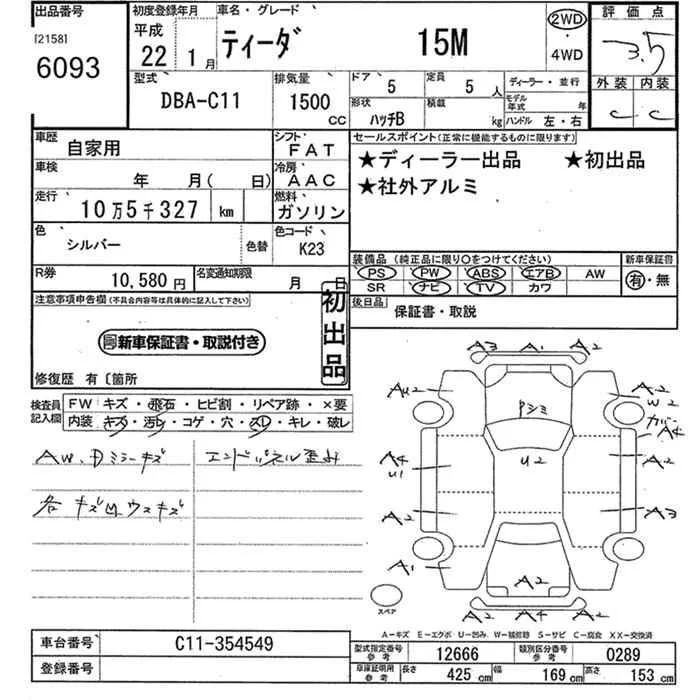 出品番号 初度登録年月 車名・グレード 2WD 評価点
[2158] 平成 ティーダ 15M ・ 3.5
6093 22年 1月 4WD
型式 排気量 ドア 5 定員 5人 ディーラー・並行 外装 内装
DBA-C11 1500cc 形状 ハッチB 積載 kg モデル年式 年 C C
ハンドル 左・右
車歴 自家用 シフト FAT セールスポイント(正常に機能するものに限ります)
車検 年 月( 日) 冷房 AAC ★ディーラー出品 ★初出品
走行 10万5千327 km 燃料 ガソリン ★社外アルミ
色 シルバー 色替 色コード K23
装備品(純正品に限り○をつけてください) 新車保証書
R券 10,580円 名変通知期限 月 日 PS PW ABS エアB AW 有・無
SR ナビ TV カワ
注意事項申告欄(不具合内容等は具体的に記入して下さい) 初出品 後日品 保証書・取説
新車保証書・取説付き
修復歴 有〔箇所
検査員記入欄 FW キズ・飛石・ヒビ割・リペア跡・×要
内装 キズ・汚レ・コゲ・穴・スレ・キレ・破レ
AW、Dミラーキズ エンドパネル歪み
各キズ凹ウスキズ
A3 A1 A2
AU2 A2
W2
Pシミ カバー
A4
A4 U2 A2
U1
A2 A3
A1 A2 A2
A2 A4 A2
スペア
A-キズ E-エグボ U-凹み W-補修跡 S-サビ C-腐食 XX-交換済
車台番号 C11-354549 型式指定番号 参考 12666 類別区分番号 参考 0289
登録番号 車庫証明用 参考 長さ 425cm 幅 169cm 高さ 153cm